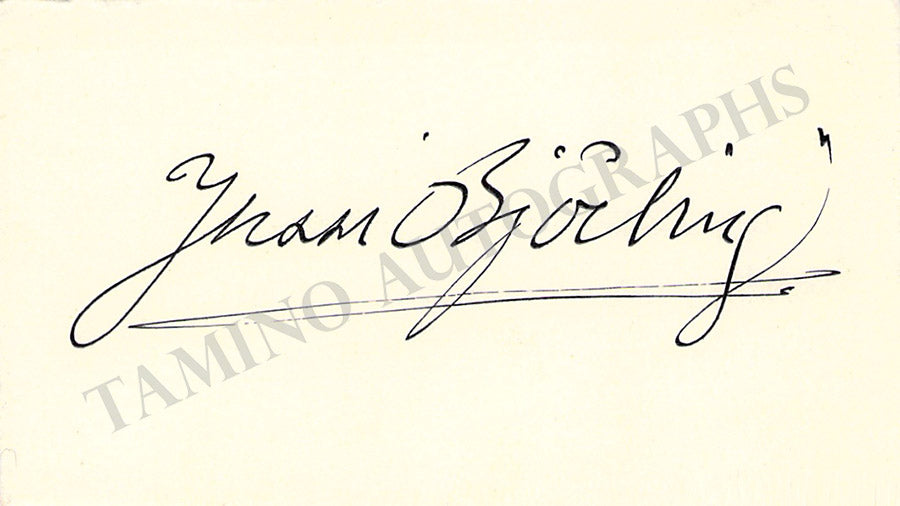 Jussi Björling
TAMINO AUTOGRAPHS